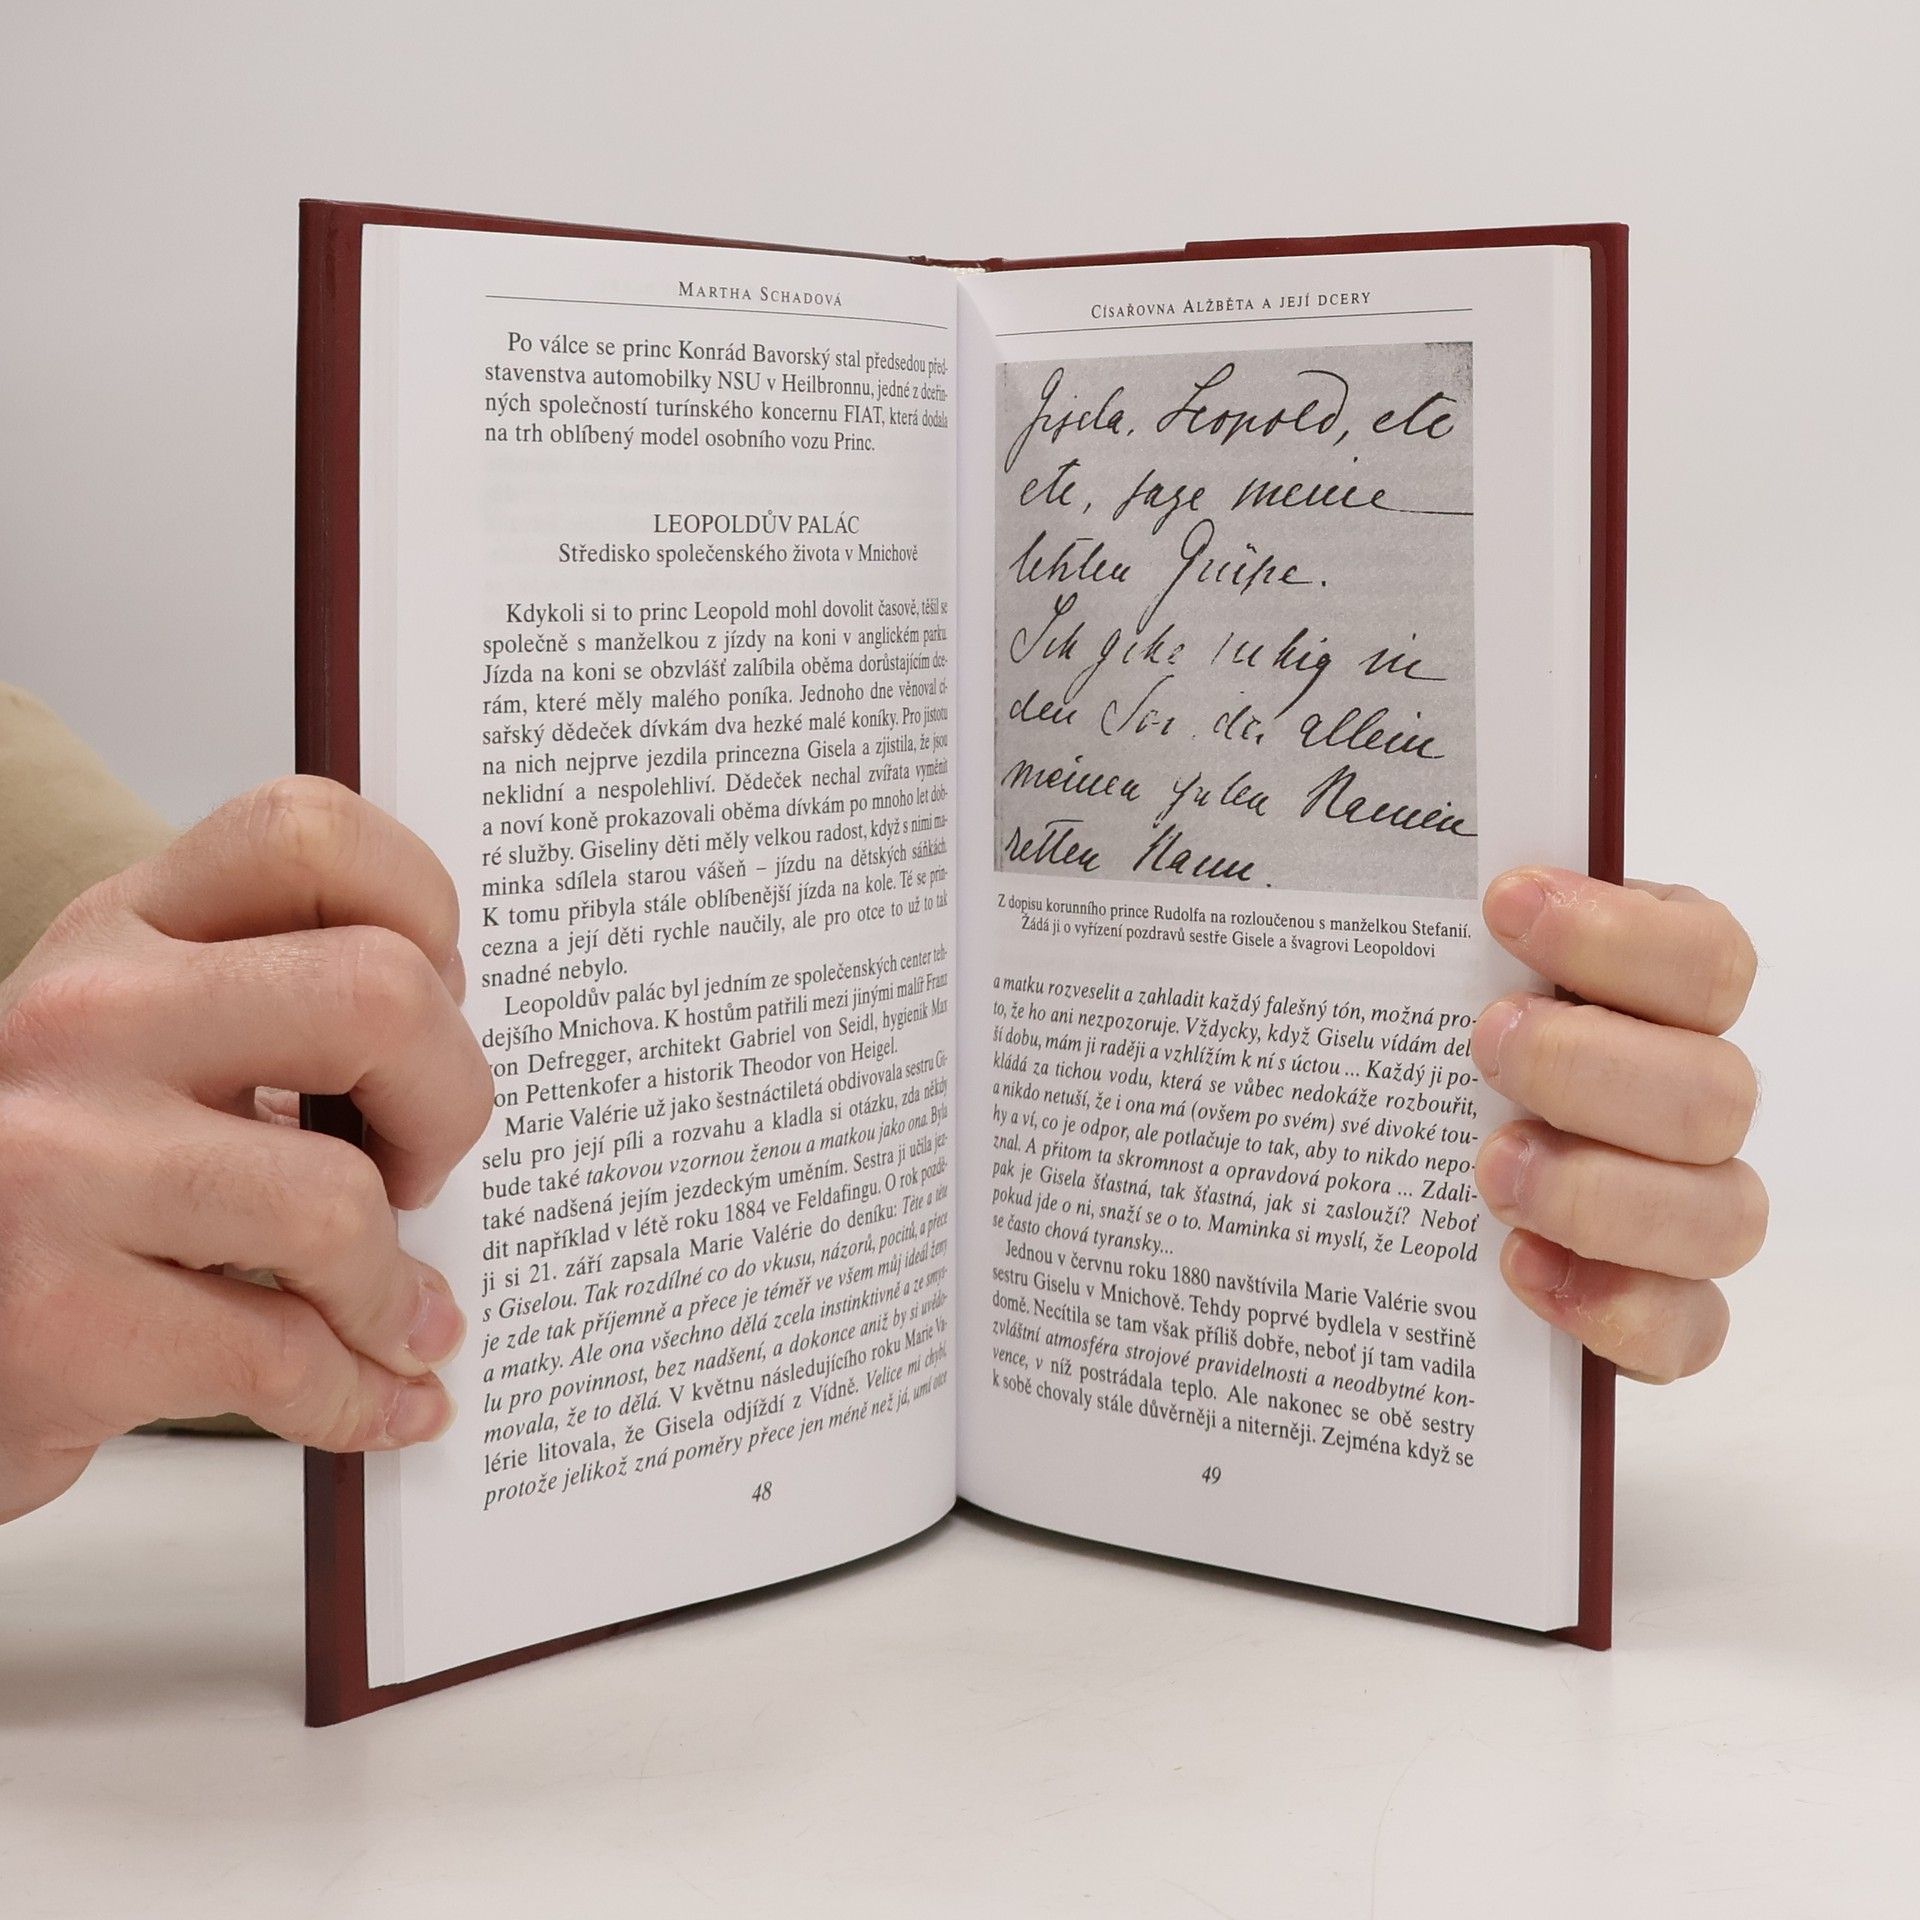 MARTHA SCHADOVÁ
Po válce se princ Konrád Bavorský stal předsedou před-
stavenstva automobilky NSU v Heilbronnu, jedné z dceřin-
ných společností turínského koncernu FIAT, která dodala
na trh oblíbený model osobního vozu Princ.
LEOPOLDŮV PALÁC
Středisko společenského života v Mnichově
Kdykoli si to princ Leopold mohl dovolit časově, těšil se
společně s manželkou z jízdy na koni v anglickém parku.
Jízda na koni se obzvlášť zalíbila oběma dorůstajícím dce-
rám, které měly malého poníka. Jednoho dne věnoval cí-
sařský dědeček dívkám dva hezké malé koníky. Pro jistotu
na nich nejprve jezdila princezna Gisela a zjistila, že jsou
neklidní a nespolehliví. Dědeček nechal zvířata vyměnit
a noví koně prokazovali oběma dívkám po mnoho let dob-
ré služby. Giseliny děti měly velkou radost, když s nimi ma-
minka sdílela starou vášeň – jízdu na dětských sáňkách.
K tomu přibyla stále oblíbenější jízda na kole. Té se prin-
cezna a její děti rychle naučily, ale pro otce to už to tak
snadné nebylo.
Leopoldův palác byl jedním ze společenských center teh-
dejšího Mnichova. K hostům patřili mezi jinými malíř Franz
von Defregger, architekt Gabriel von Seidl, hygienik Max
von Pettenkofer a historik Theodor von Heigel.
Marie Valérie už jako šestnáctiletá obdivovala sestru Gi-
selu pro její píli a rozvahu a kladla si otázku, zda někdy
bude také takovou vzornou ženou a matkou jako ona. Byla
také nadšená jejím jezdeckým uměním. Sestra ji učila jez-
dit například v létě roku 1884 ve Feldafingu. O rok pozdě-
ji si 21. září zapsala Marie Valérie do deníku: Tête a tête
s Giselou. Tak rozdílné co do vkusu, názorů, pocitů, a přece
je zde tak příjemně a přece je téměř ve všem můj ideál ženy
a matky. Ale ona všechno dělá zcela instinktivně a ze smys-
lu pro povinnost, bez nadšení, a dokonce aniž by si uvědo-
movala, že to dělá. V květnu následujícího roku Marie Va-
lérie litovala, že Gisela odjíždí z Vídně. Velice mi chybí,
protože jelikož zná poměry přece jen méně než já, umí otce
48
CÍSAŘOVNA ALŽBĚTA A JEJÍ DCERY
Gisela, Leopold, etc
etc, sage meine
letzten Grüße.
Ich gehe ruhig in
den Tod, der allein
meinen guten Namen
retten kann.
Z dopisu korunního prince Rudolfa na rozloučenou s manželkou Stefanií.
Žádá ji o vyřízení pozdravů sestře Gisele a švagrovi Leopoldovi
a matku rozveselit a zahladit každý falešný tón, možná pro-
to, že ho ani nezpozoruje. Vždycky, když Giselu vídám del-
ší dobu, mám ji raději a vzhlížím k ní s úctou ... Každý ji po-
kládá za tichou vodu, která se vůbec nedokáže rozbouřit,
a nikdo netuší, že i ona má (ovšem po svém) své divoké tou-
hy a ví, co je odpor, ale potlačuje to tak, aby to nikdo nepo-
znal. A přitom ta skromnost a opravdová pokora ... Zdali-
pak je Gisela šťastná, tak šťastná, jak si zaslouží? Neboť
pokud jde o ni, snaží se o to. Maminka si myslí, že Leopold
se často chová tyransky...
Jednou v červnu roku 1880 navštívila Marie Valérie svou
sestru Giselu v Mnichově. Tehdy poprvé bydlela v sestřině
domě. Necítila se tam však příliš dobře, neboť jí tam vadila
zvláštní atmosféra strojové pravidelnosti a neodbytné kon-
vence, v níž postrádala teplo. Ale nakonec se obě sestry
k sobě chovaly stále důvěrněji a niterněji. Zejména když se
49